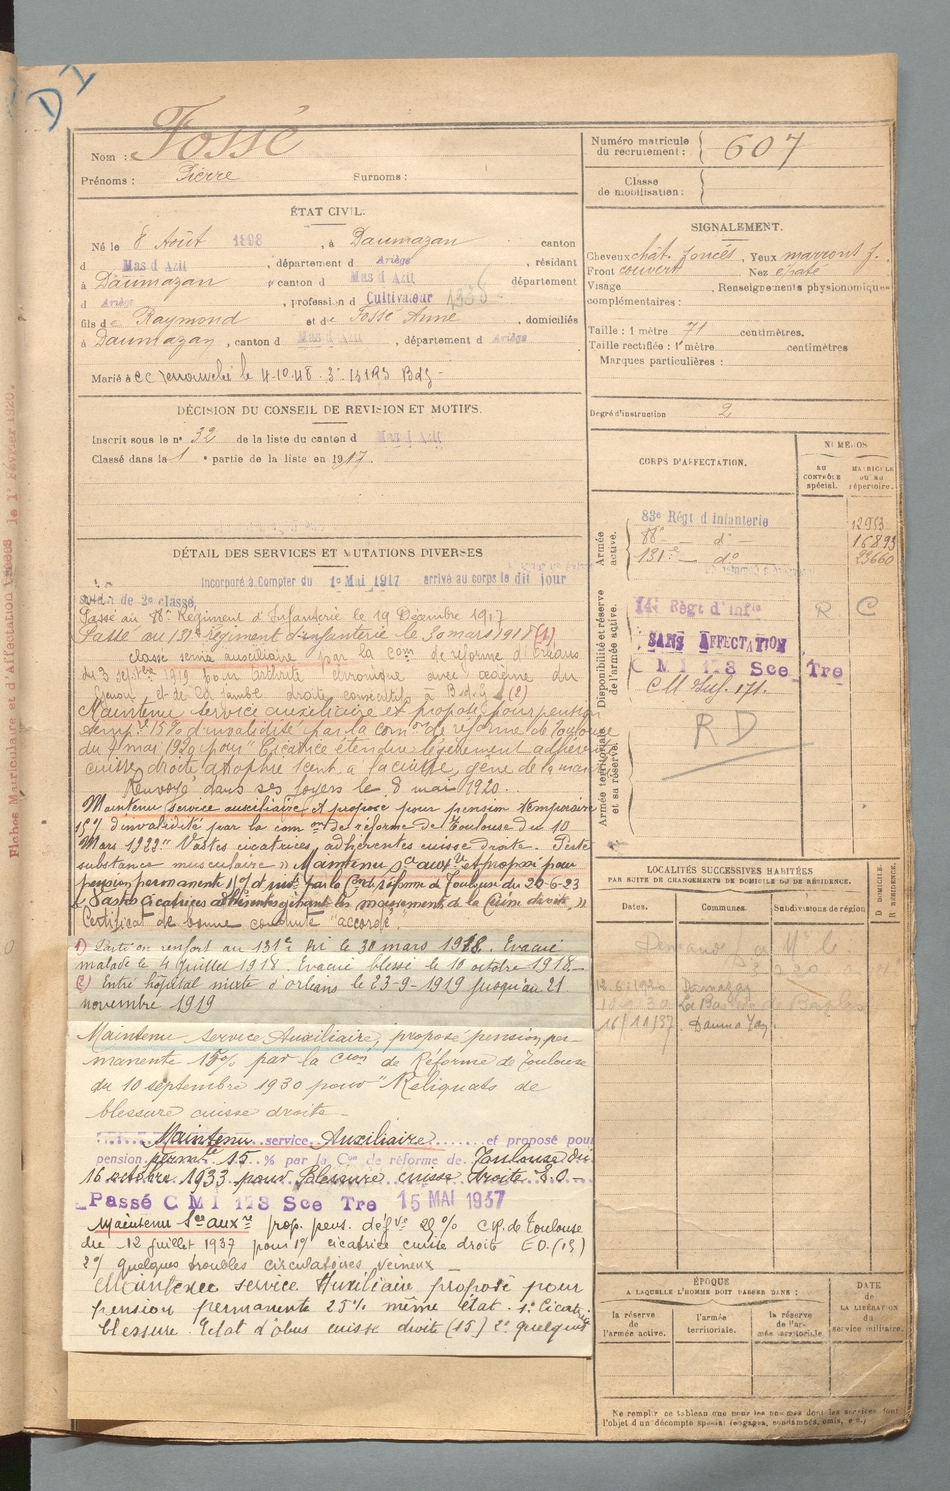 D1
Nom : Fossé
Prénoms : Pierre Surnoms :
Numéro matricule du recrutement : 607
Classe de mobilisation :
ÉTAT CIVIL.
Né le 8 Août 1898, à Daumazan canton
d Mas d Azil, département d Ariège, résidant
à Daumazan canton d Mas d Azil département
d Ariège, profession d Cultivateur
fils de Raymond et de Fossé Anne, domiciliés
à Daumazan, canton d Mas d Azil, département d Ariège
Marié à le 4.10.48
SIGNALEMENT.
Cheveux chât. foncés, Yeux marrons f.
Front couvert Nez épaté
Visage , Renseignements physionomiques
complémentaires :
Taille : 1 mètre 71 centimètres.
Taille rectifiée : 1 mètre centimètres
Marques particulières :
Degré d'instruction 2
DÉCISION DU CONSEIL DE REVISION ET MOTIFS.
Inscrit sous le n° 32 de la liste du canton d Mas d Azil
Classé dans la 1e partie de la liste en 1917.
DÉTAIL DES SERVICES ET MUTATIONS DIVERSES
Incorporé à Compter du 1e Mai 1917 arrivé au corps le dit jour
soldat de 2e classe,
Passé au 88e Régiment d'Infanterie le 19 Décembre 1917
Passé au 131e régiment d'infanterie le 30 mars 1918 (1)
classé service auxiliaire par la Com de réforme d'Orléans
du 3 septbre 1919 pour arthrite chronique avec oedème du
genou et de la jambe droite consécutif à B.d.G (2)
Maintenu service auxiliaire et proposé pour pension
temp.re 15% d'invalidité par la comon de réforme de Toulouse
du 7 mai 1920 pour "Cicatrice étendue légèrement adhérente
cuisse droite, atrophie 1 cent. a la cuisse, gêne de la marche
Renvoyé dans ses foyers le 8 mai 1920.
Maintenu service auxiliaire et proposé pour pension temporaire
15% d'invalidité par la comon de réforme de Toulouse du 10
Mars 1922 "Vastes cicatrices adhérentes cuisse droite. Perte
substance musculaire" Maintenu Sce auxre et proposé pour
pension permanente 15% d'invté par la Con de réforme de Toulouse du 20-6-23
"Vastes cicatrices adhérentes gênant les mouvements de la cuisse droite"
Certificat de bonne conduite "accordé"
1) Parti en renfort au 131e RI le 30 mars 1918. Evacué
malade le 4 Juillet 1918. Evacué blessé le 10 octobre 1918.
(2) Entré hôpital mixte d'orléans le 23-9-1919 jusqu'au 21
novembre 1919
Maintenu service Auxiliaire, proposé pension per-
manente 15% par la Cion de Réforme de Toulouse
du 10 septembre 1930 pour "Reliquats de
blessure cuisse droite
Maintenu service Auxiliaire et proposé pour
pension permte 15 % par la Con de réforme de Toulouse du
16 octobre 1933 pour Blessure cuisse droite
Passé C M I 178 Sce Tre 15 MAI 1937
Maintenu Sce auxre prop. pens. défve 20% C.R. de Toulouse
du 12 juillet 1937 pour 1° cicatrice cuisse droite E.O. (15)
2° quelques troubles circulatoires veineux
Maintenu service Auxiliaire proposé pour
pension permanente 25% même état. 1° Cicatrice
blessure Eclat d'obus cuisse droite (15) 2° quelques
CORPS D'AFFECTATION.
NUMÉROS
AU CONTRÔLE spécial.
MATRICULE ou au répertoire.
Armée active.
83e Régt d Infanterie 12953
88e — d° — 16893
131e — d° 23660
Disponibilité et réserve de l'armée active.
14e Régt d'Infie R C
SANS AFFECTATION
C M I 178 Sce Tre
Armée territoriale et sa réserve.
RD
LOCALITÉS SUCCESSIVES HABITÉES
PAR SUITE DE CHANGEMENTS DE DOMICILE OU DE RÉSIDENCE.
Dates. Communes. Subdivisions de région D DOMICILE. R RÉSIDENCE.
La Bastide de Besplas
16/11/37 Daumazan
ÉPOQUE
A LAQUELLE L'HOMME DOIT PASSER DANS :
la réserve de l'armée active.
l'armée territoriale.
la réserve de l'armée territoriale
DATE de LA LIBÉRATION du service militaire.
Ne remplir ce tableau que pour les hommes dont les services font
l'objet d'un décompte spécial (engagés, condamnés, omis, etc.)
Fiches Matriculaire et d'Affectation le 1r Février 1920.